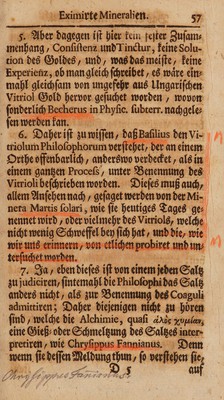 Eximirte Mineralien. 57
5. Aber dagegen ist hier kein fester Zusam-
menhang, Consistenz und Tinctur, keine Solu-
tion des Goldes, und, was das meiste, keine
Experienz, ob man gleich schreibet, es wäre ein-
mahl gleichsam von ungefehr aus Ungarischen
Vitriol Gold hervor gesuchet worden, wovon
sonderlich Becherus in Physic. subterr. nachgele-
sen werden kan.
6. Daher ist zu wissen, daß Basilius den Vi-
triolum Philosophorum verstehet, der an einem
Orthe offenbarlich, anderswo verdeckt, als in
einem gantzen Process, unter Benennung des
Vitrioli beschrieben worden. Dieses muß auch,
allem Ansehen nach, gesaget werden von der Mi-
nera Martis solari, wie sie heutiges Tages ge-
nennet wird, oder vielmehr des Vitriols, welche
nicht wenig Schweffel bey sich hat, und die, wie
wir uns erinnern, von etlichen probiret und un-
tersuchet worden.
7. Ja, eben dieses ist von einem jeden Saltz
zu judiciren, sintemahl die Philosophi das Saltz
anders nicht, als zur Benennung des Coaguli
admittiren; Daher diejenigen nicht zu hören
sind, welche die Alchimie, quasi ἁλὸς χυμίαν,
eine Gieß- oder Schmeltzung des Saltzes inter-
pretiren, wie Chrysippus Fannianus. Denn
wenn sie dessen Meldung thun, so verstehen sie,
D 5 auf
Chrysippus Fanianus.